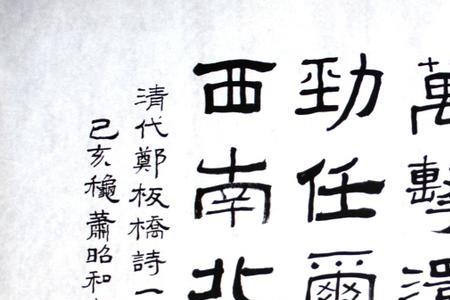 萬擊還
勁任爾
西南北
清代鄭板橋詩一
己亥秋蕭昭和